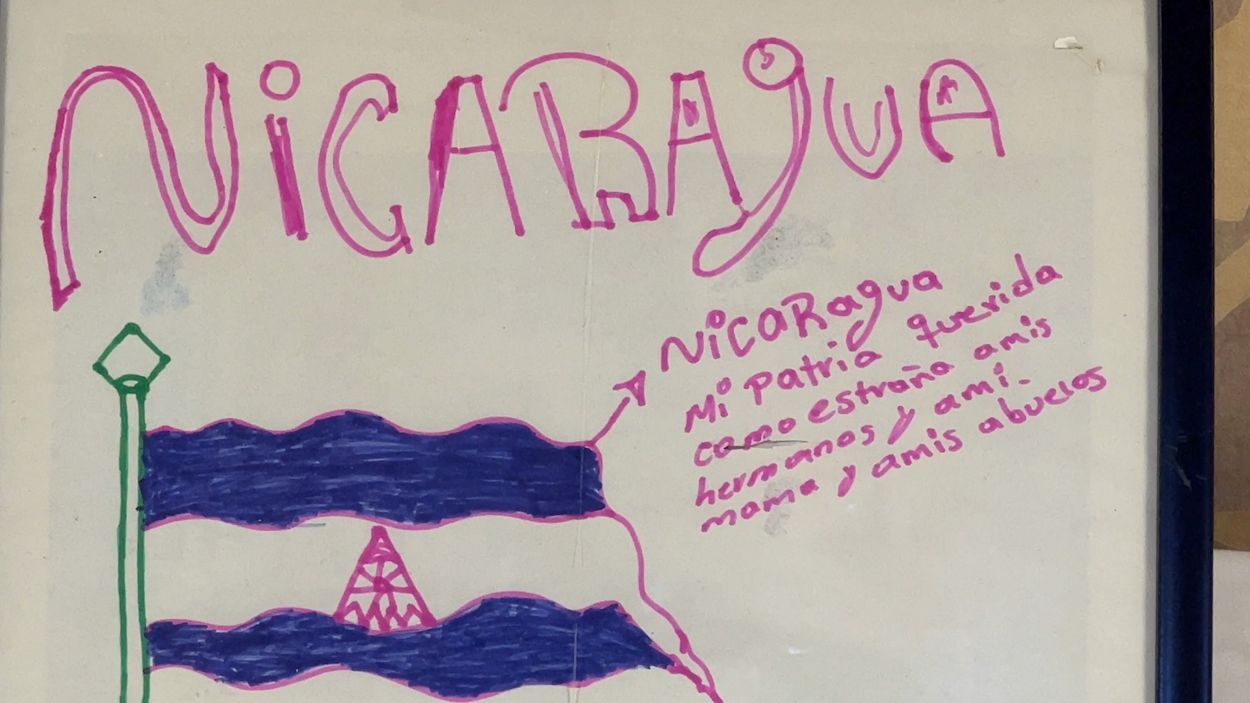 NiCARAgUA
NiCaRagua
Mi patria querida
como estraña amis
hermanos y ami.
mama y amis abuelos